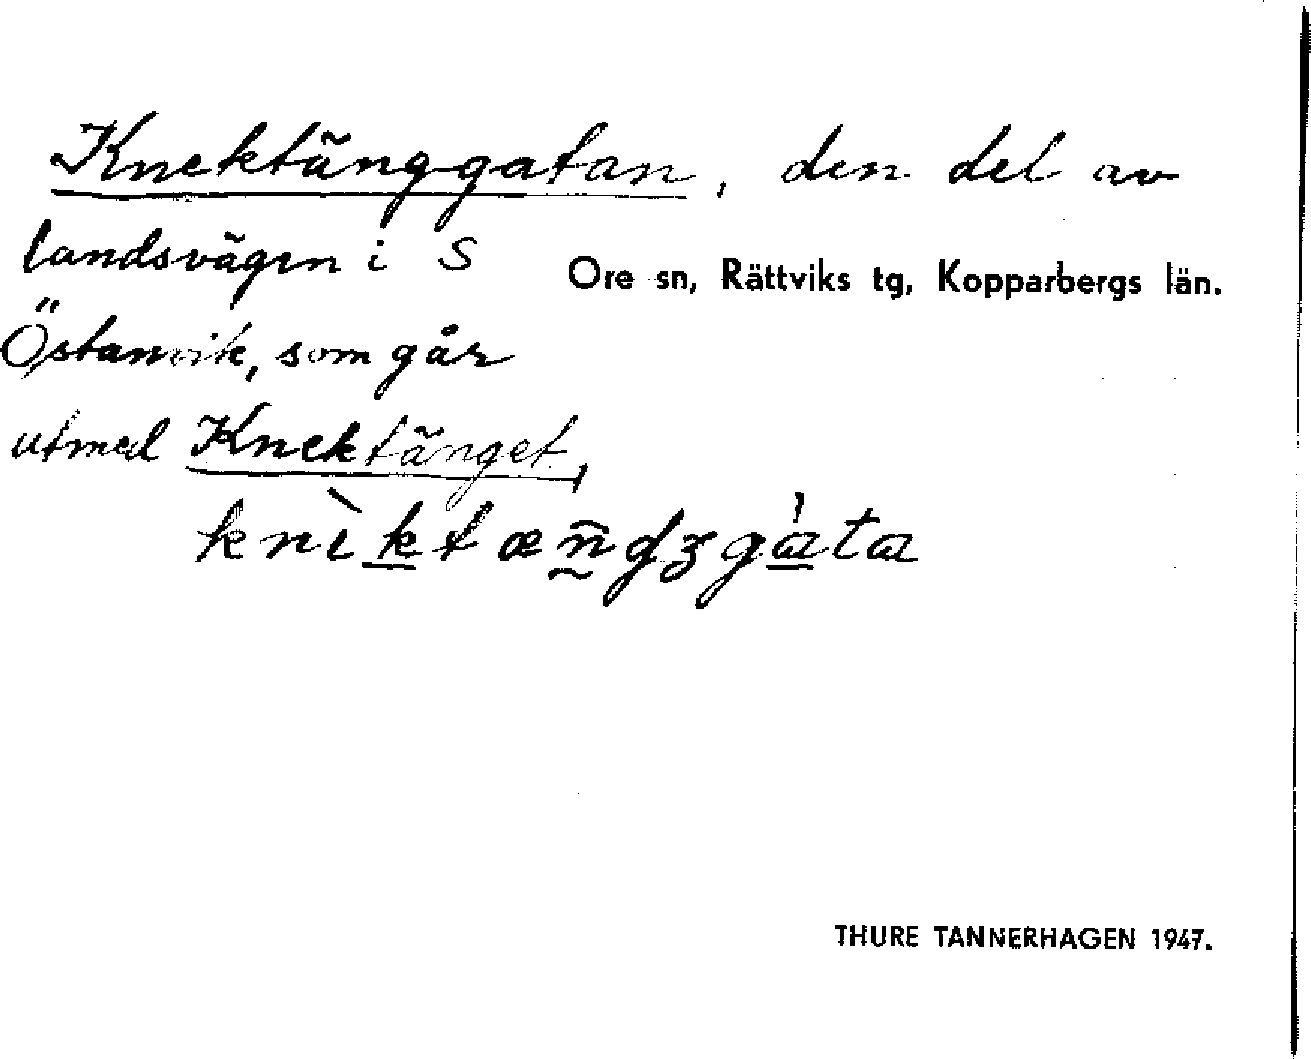 Knektänggatan, den del av
landsvägen i S
Ore sn, Rättviks tg, Kopparbergs län.
Östanvik, som går
utmed Knektänget,
THURE TANNERHAGEN 1947.